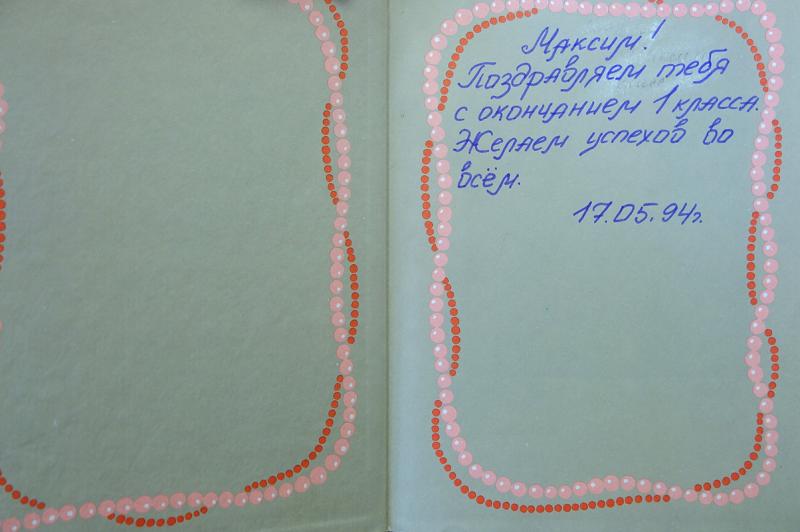 Максим!
Поздравляем тебя
с окончанием 1 класса.
Желаем успехов во
всём.
17.05.94г.